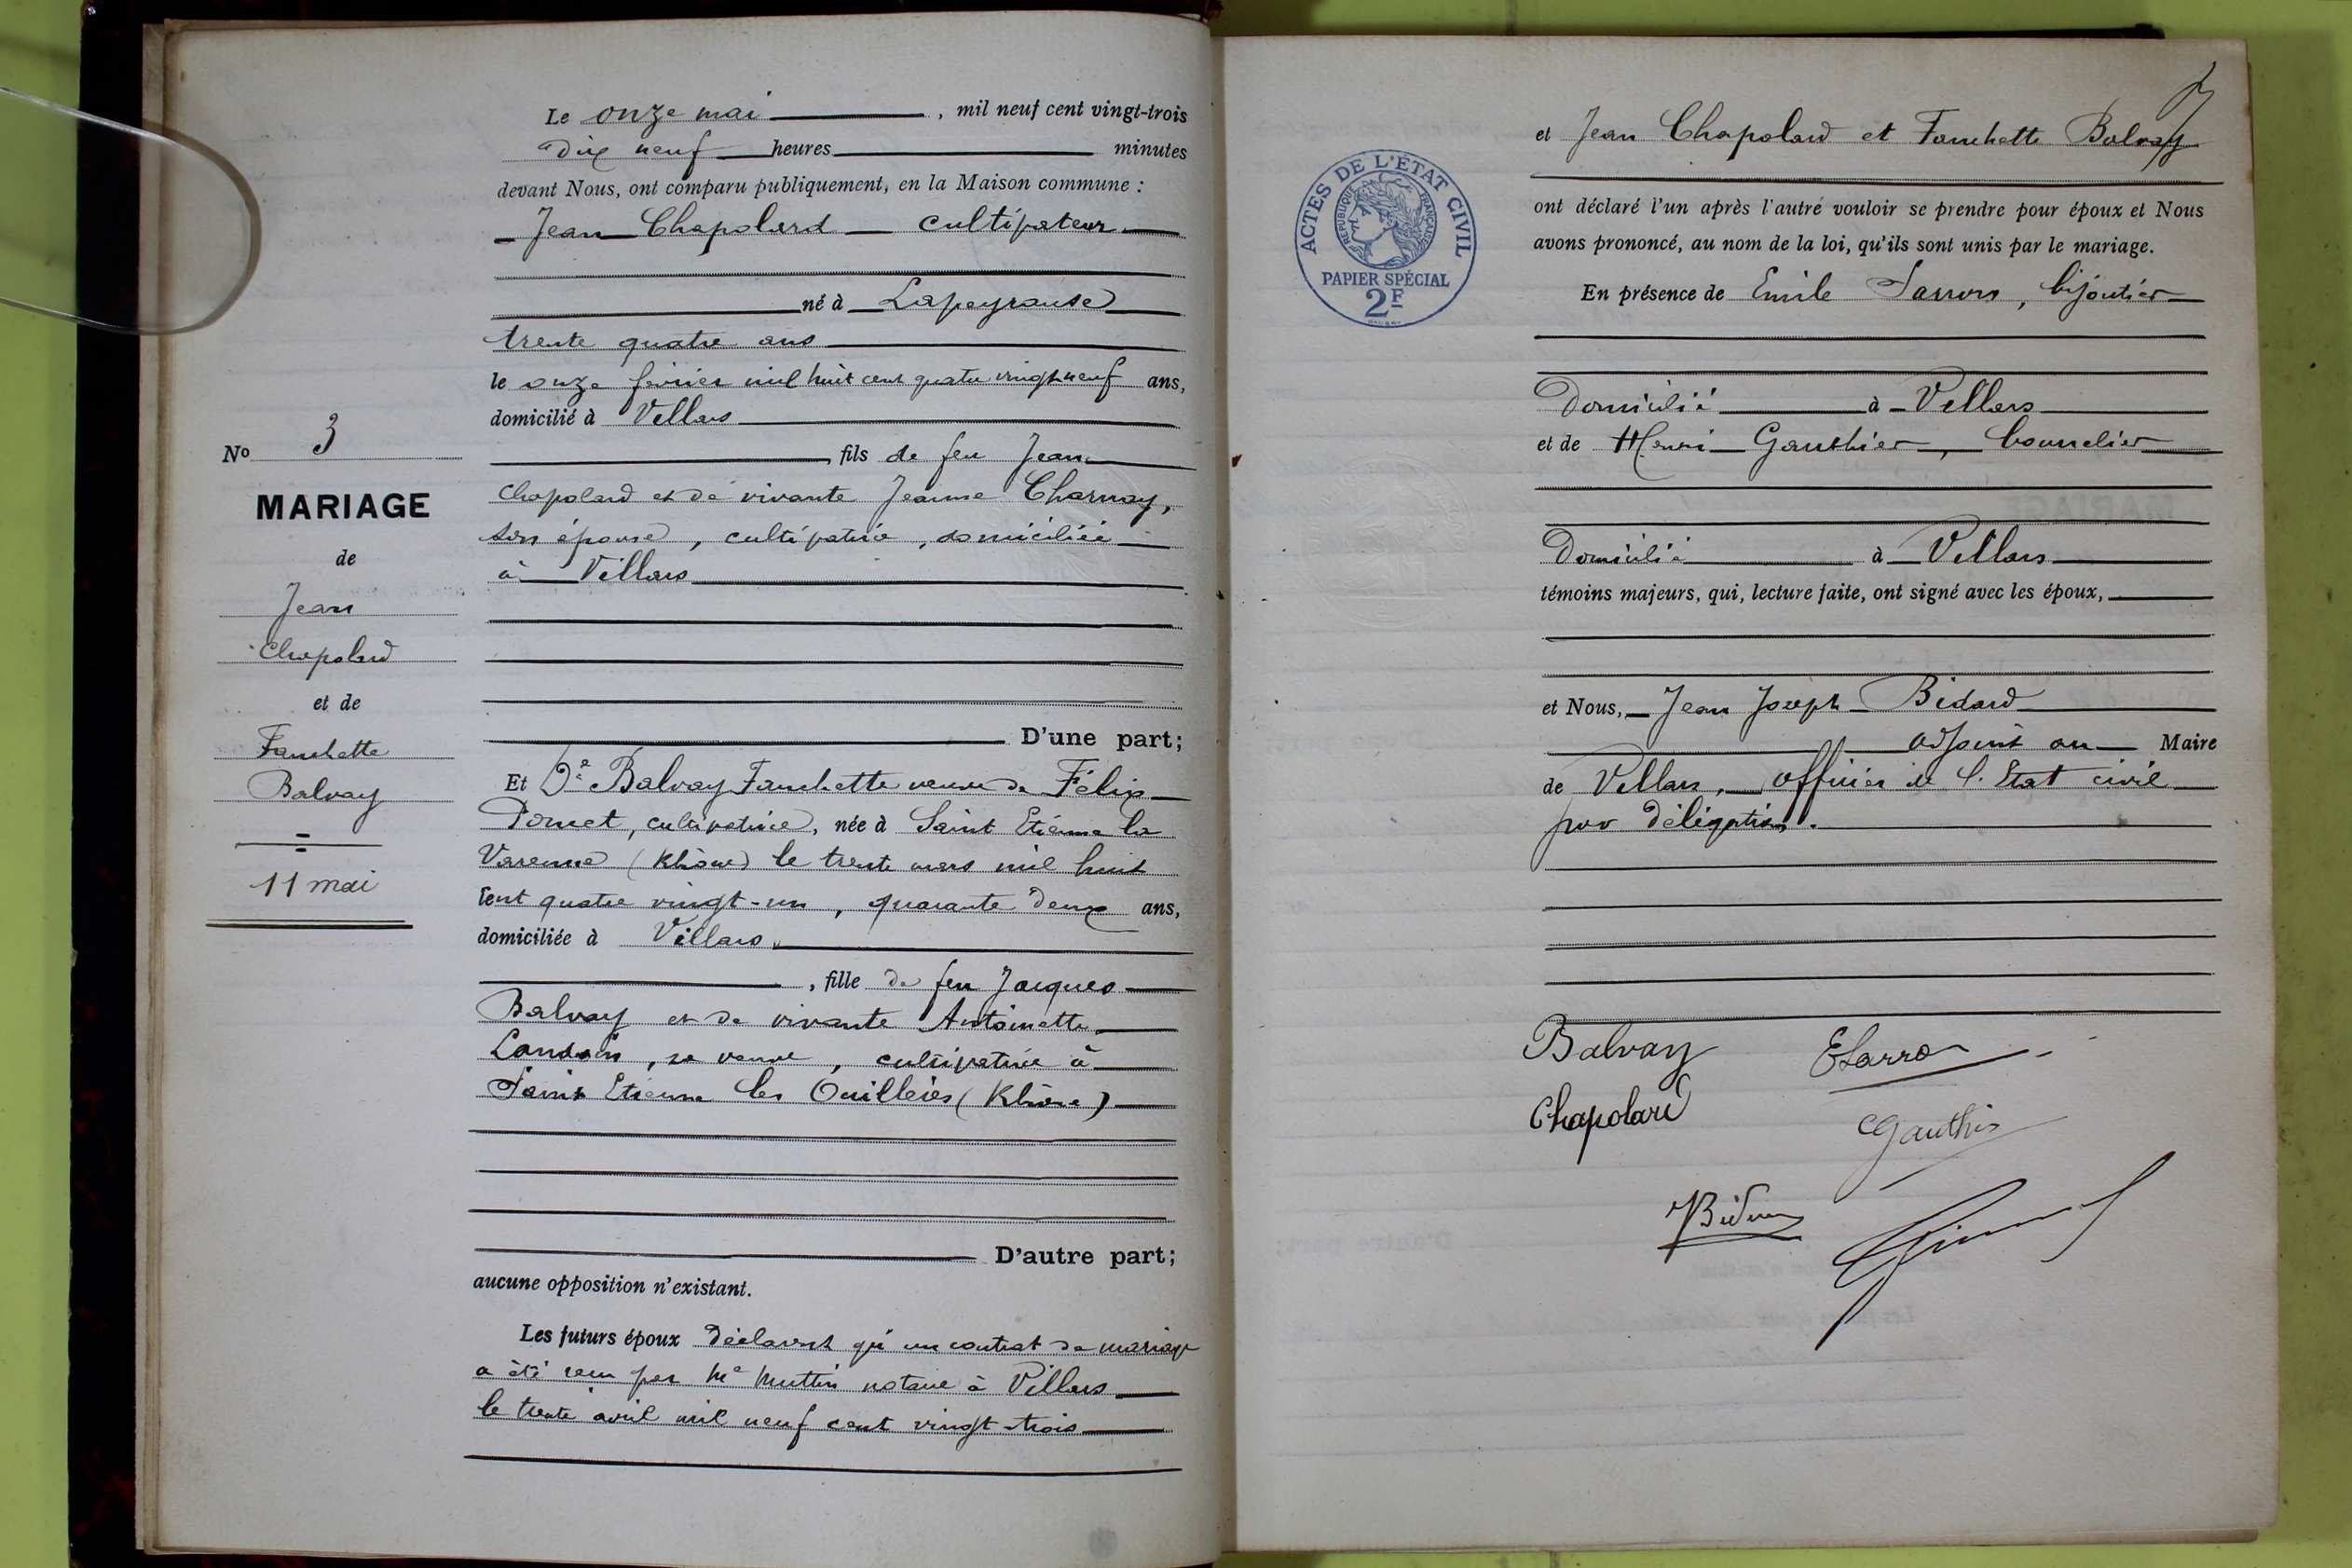 Le onze mai , mil neuf cent vingt-trois
à dix neuf heures minutes
devant Nous, ont comparu publiquement, en la Maison commune :
Jean Chapolard cultivateur
né à Lapeyrouse
trente quatre ans
le onze février mil huit cent quatre vingt neuf ans,
domicilié à Villars
, fils de feu Jean
Chapolard et de vivante Jeanne Charnay,
son épouse, cultivatrice, domiciliée
à Villars
D'une part;
Et De Balvay Fanchette veuve de Félix
Poncet, cultivatrice, née à Saint Etienne la
Varenne (Rhône) le trente mars mil huit
cent quatre vingt-un, quarante deux ans,
domiciliée à Villars,
, fille de feu Jacques
Balvay et de vivante Antoinette
sa veuve, cultivatrice à
Saint Etienne les Ouillères (Rhône)
D'autre part;
aucune opposition n'existant.
Les futurs époux déclarent qu'un contrat de mariage
a été reçu par Me Muttin notaire à Villars
le trente avril mil neuf cent vingt-trois
No 3
MARIAGE
de
Jean
Chapolard
et de
Fanchette
Balvay
11 mai
et Jean Chapolard et Fanchette Balvay
ACTES DE L'ÉTAT CIVIL
RÉPUBLIQUE FRANÇAISE
PAPIER SPÉCIAL
2F
ont déclaré l'un après l'autre vouloir se prendre pour époux et Nous
avons prononcé, au nom de la loi, qu'ils sont unis par le mariage.
En présence de Emile Sarron, bijoutier
Domicilié à Villars
et de Henri Gauthier, bourrelier
Domicilié à Villars
témoins majeurs, qui, lecture faite, ont signé avec les époux,
et Nous, Jean Joseph Bidard
adjoint au Maire
de Villars, officier de l'Etat civil
par délégation.
Balvay ESarron
Chapolard Gauthier
Bidard